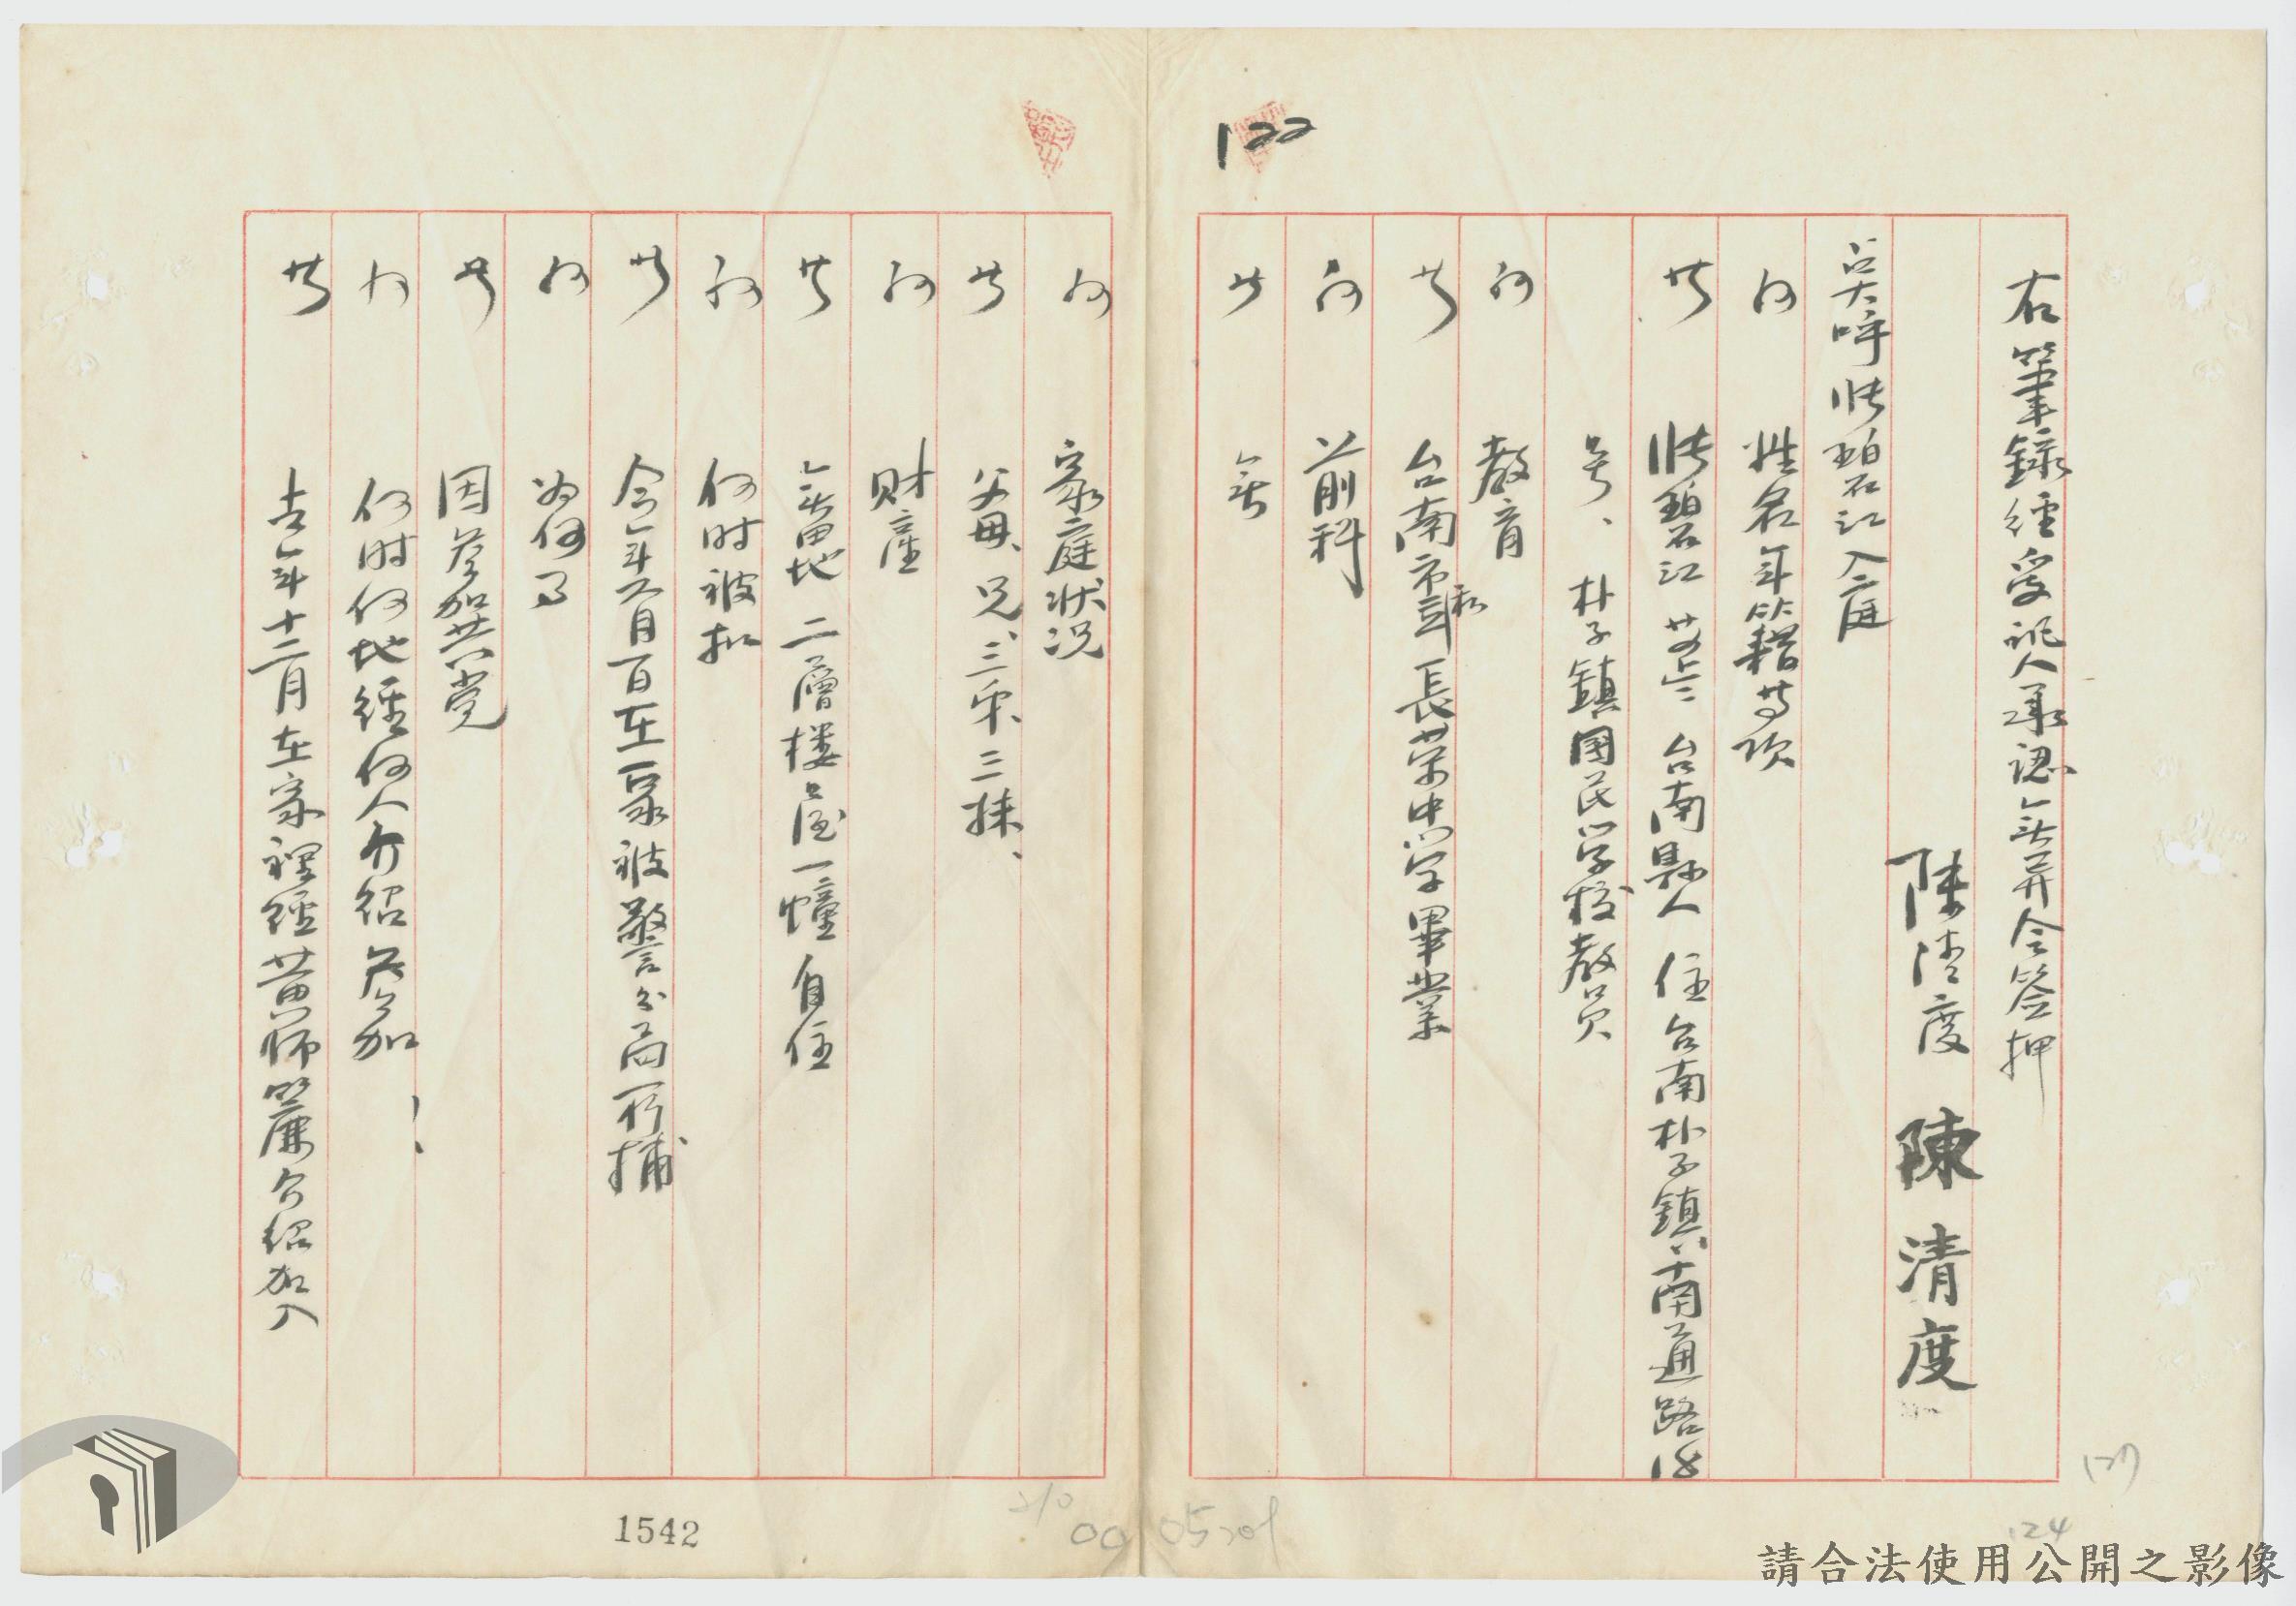 122
右筆錄經受訊人承認無異令簽押
陳清度 陳清度
點呼張碧江入庭
問 姓名年籍等項
答 張碧江 廿 台南縣人 住台南朴子鎮 南通路18
號、朴子鎮國民學校教員
問 教育
答 台南市私立長榮中學畢業
問 前科
答 無
問 家庭狀況
答 父母、兄、三弟、三妹、
問 財產
答 無田地 二層樓屋一幢自住
問 何时被扣
答 今年 月 日在家被警分局所捕
問 为何事
答 因參加共党
問 何时何地經何人介紹參加
答 去年十二月在家裡經黃師廉介紹加入
1542
127
124
210
請合法使用公開之影像